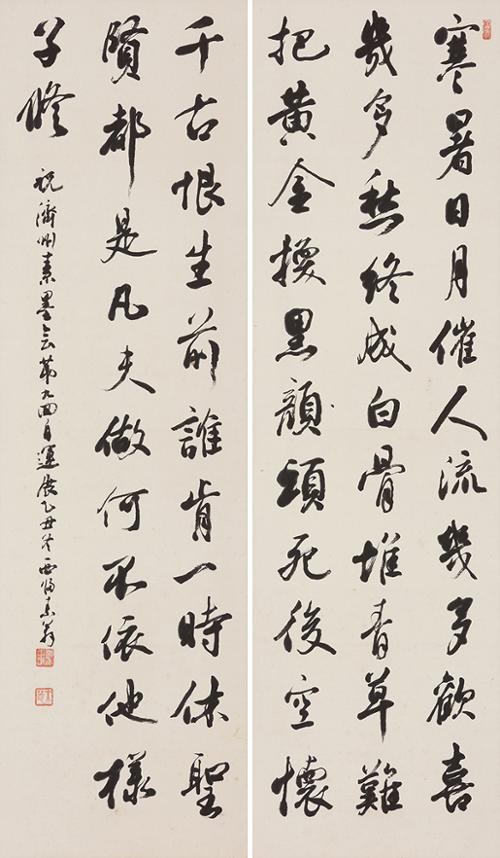 寒暑日月催人流幾多歡喜
幾多愁終成白骨堆青草難
把黃金換黑顏頭死後空懷
千古恨生前誰肯一時休聖
賢都是凡夫做何不依他樣
子修
祝濟州素墨會第九四自運展乙丑